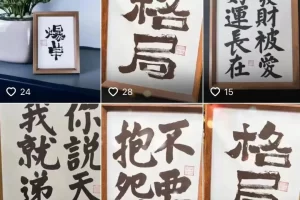 格局
發財被愛
好運長在
24
28
15
你說天
我就遞
不要
抱怨
格局